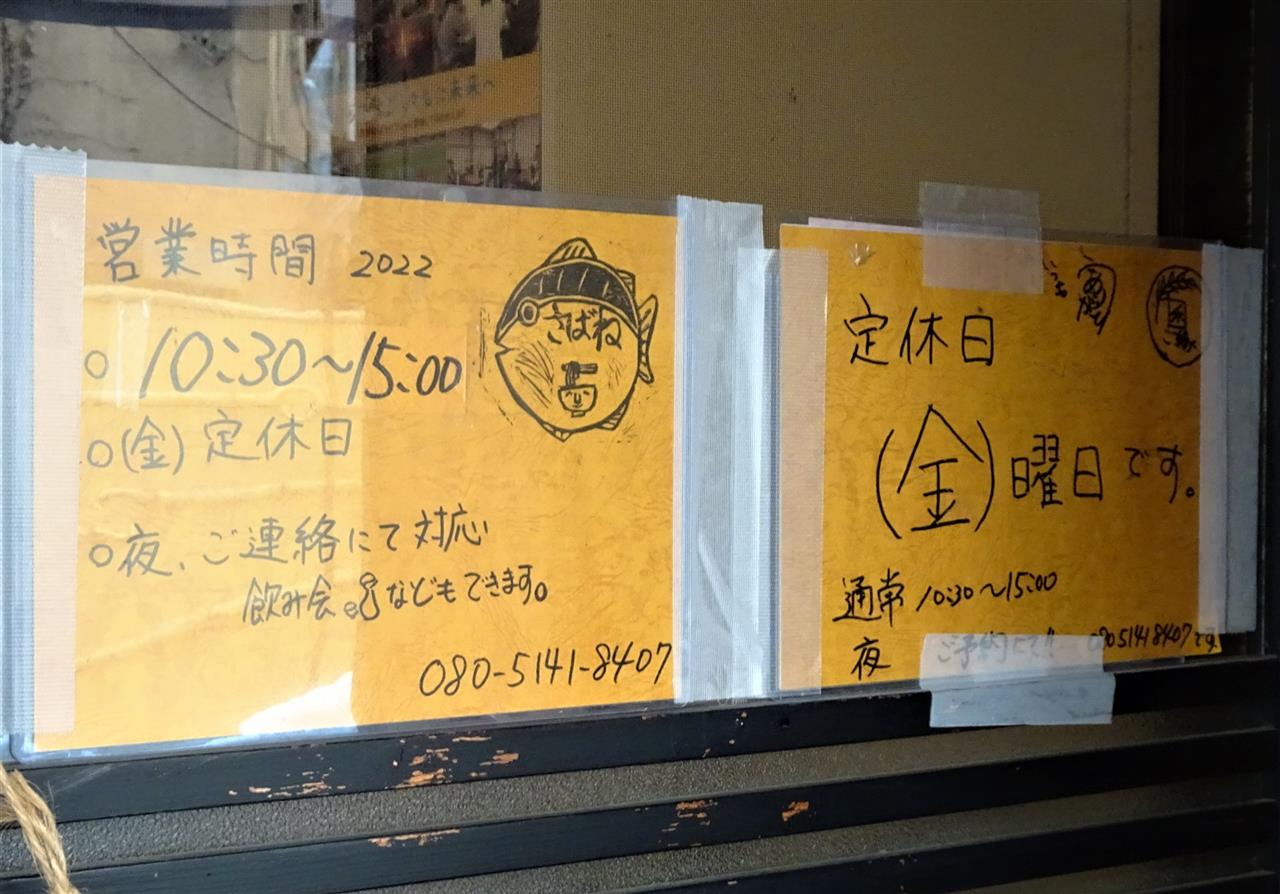 ともに未来へ
営業時間 2022
さばね
○ 10:30〜15:00
○(金)定休日
○夜、ご連絡にて対応
飲み会などもできます。
080-5141-8407
定休日
(金)曜日です。
通常 10:30〜15:00
夜 ご予約にて!! 08051418407です